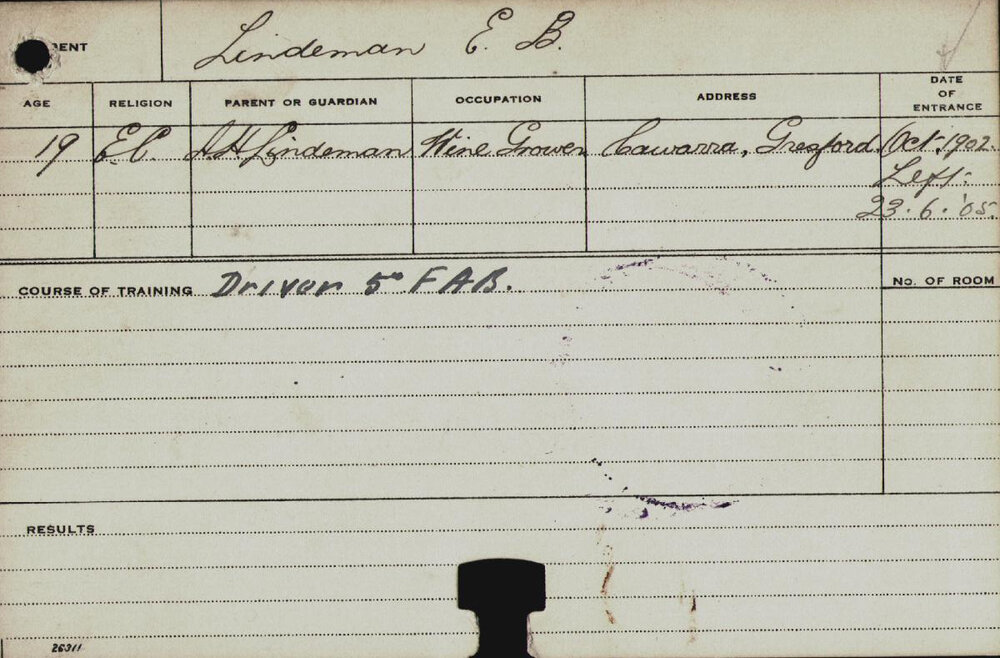 Lindeman E. B.
AGE RELIGION PARENT OR GUARDIAN OCCUPATION ADDRESS DATE OF ENTRANCE
19 E.C. Lindeman Wine Grower Cawarra, Gresford. Oct. 1902.
Left.
23.6.'05.
COURSE OF TRAINING Driver 5th FAB.
No. OF ROOM
RESULTS
26311